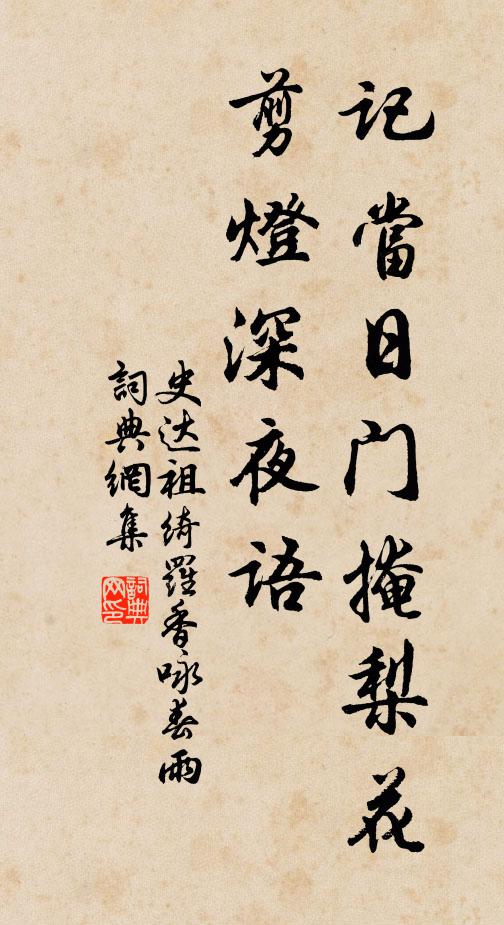 记當日门掩梨花
剪燈深夜语
史达祖绮羅香咏春雨
詞典網集
詞典
网印